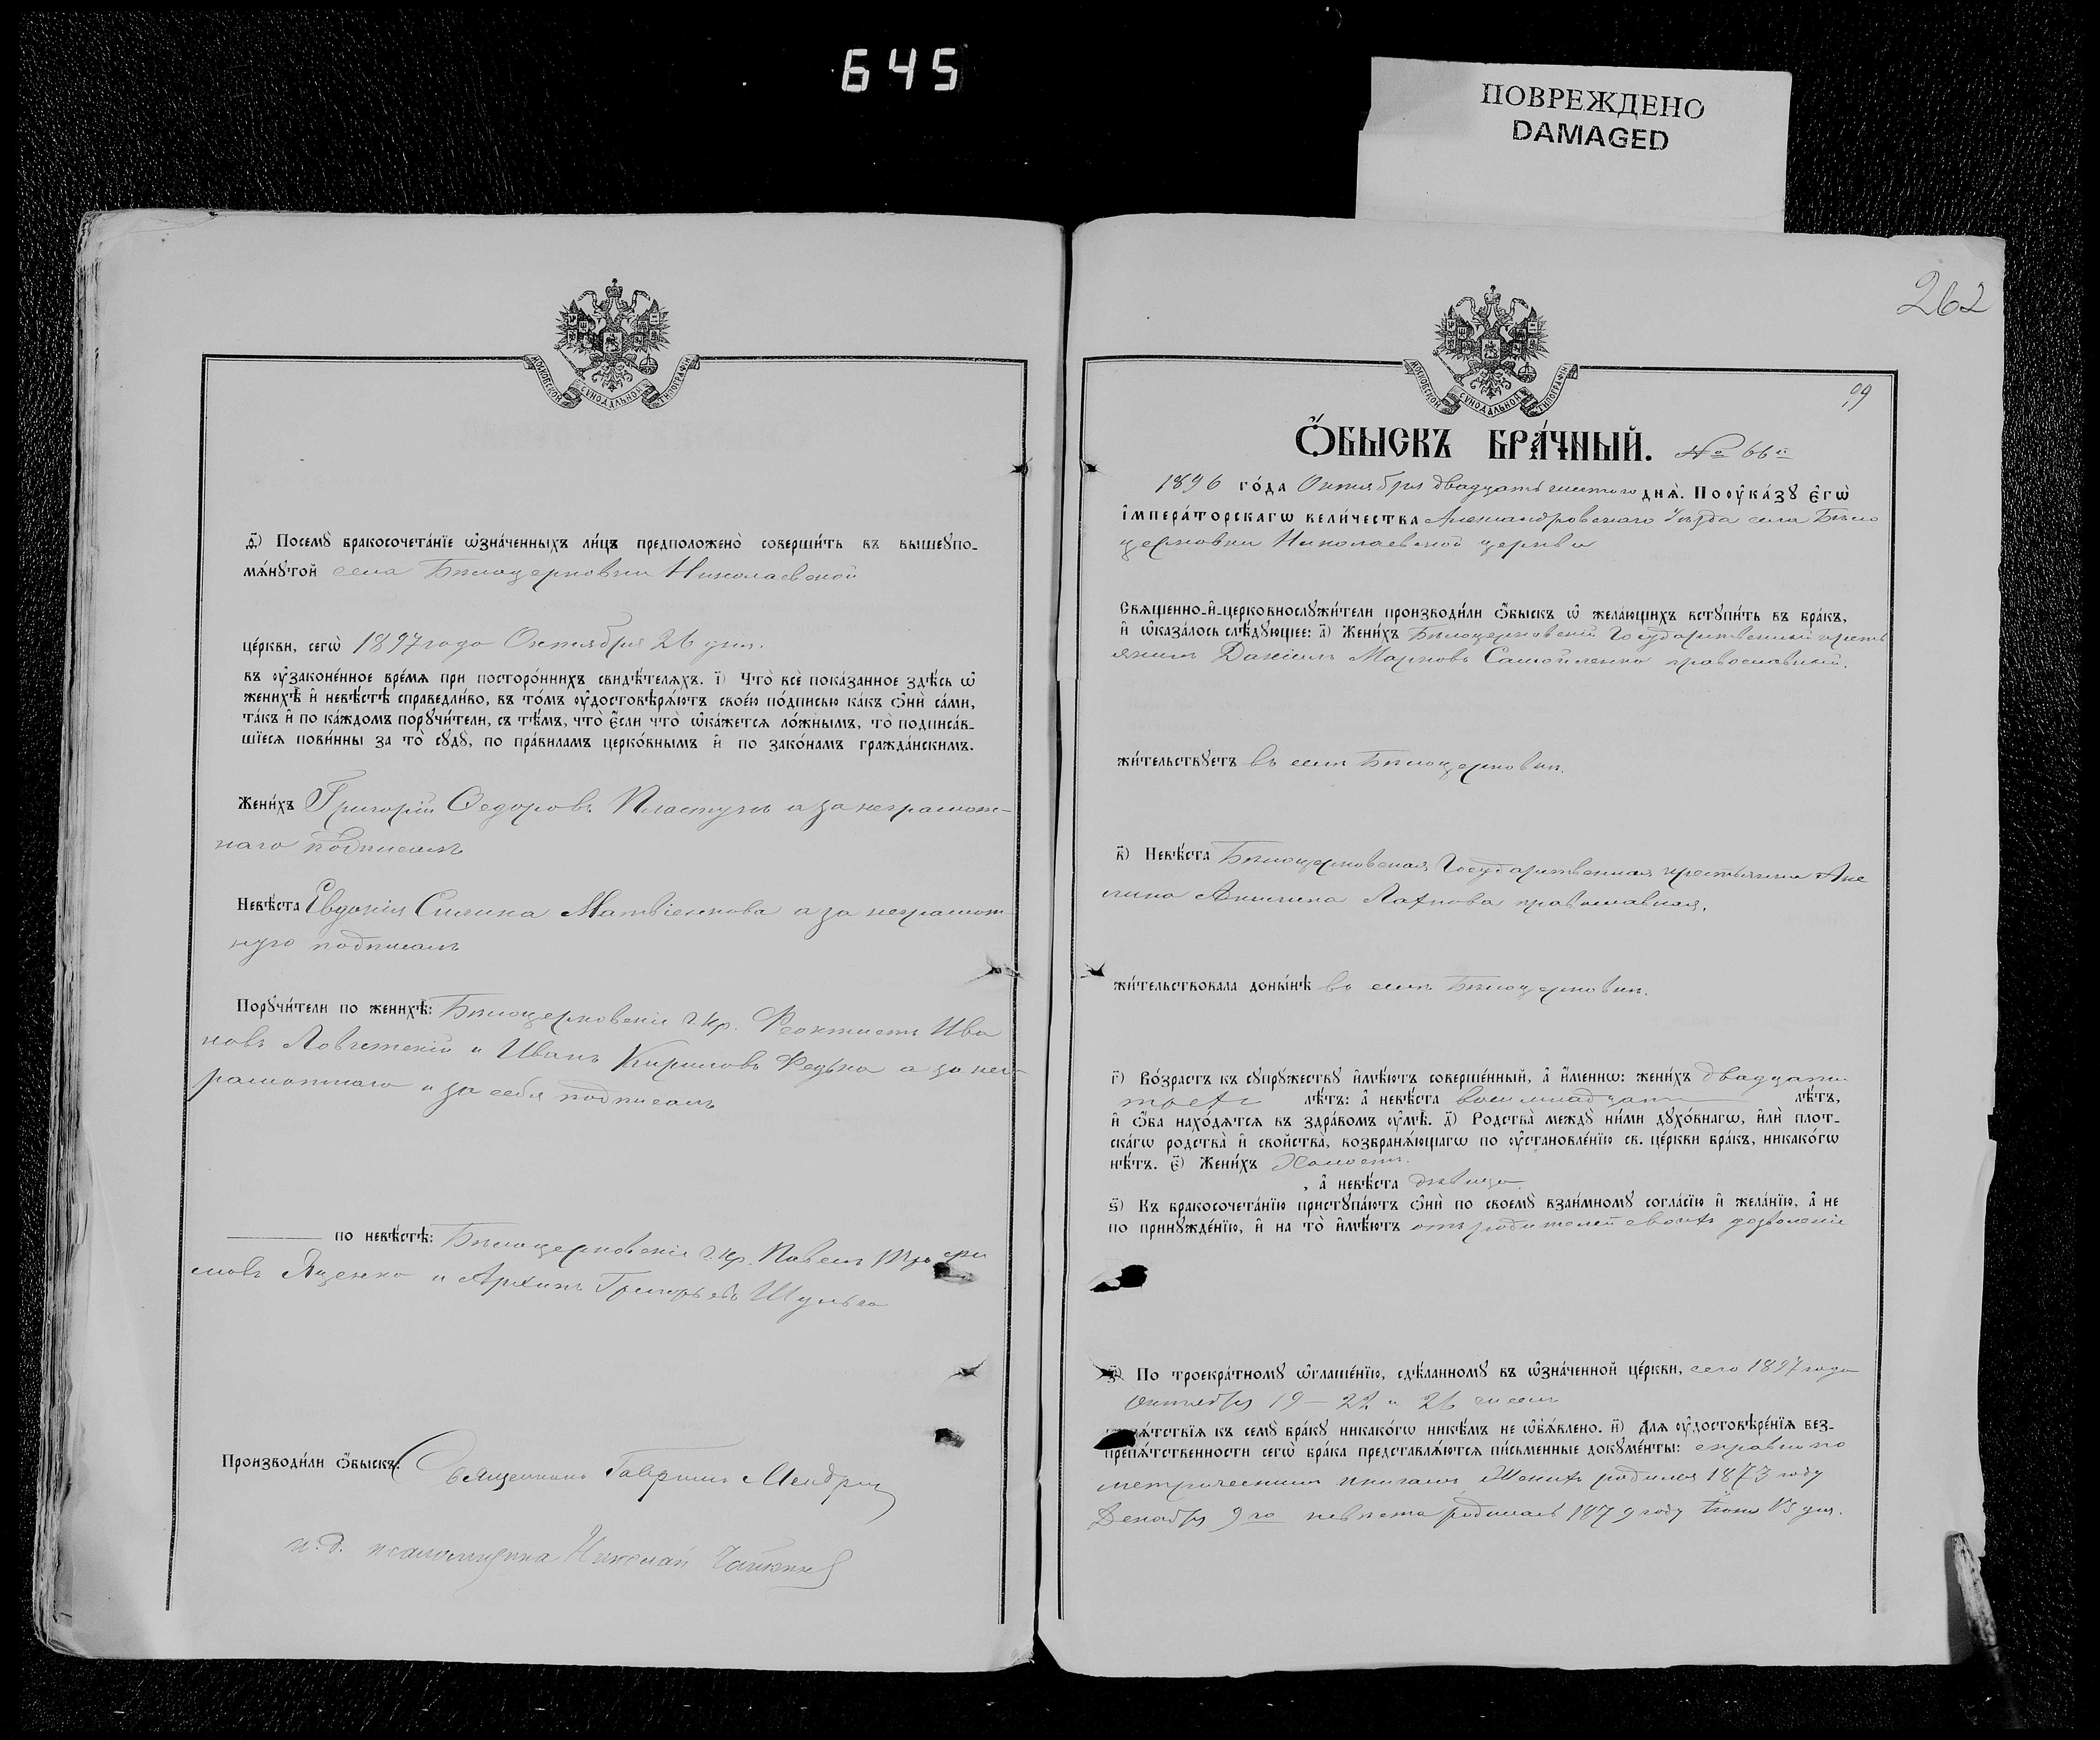 645
ПОВРЕЖДЕНО
DAMAGED
МОСКОВСКОЙ СѴНОДАЛЬНОЙ ТИПОГРАФІИ
д҃) Посемꙋ бракосочета́нїе ѡ҆зна́ченныхъ ли́цъ предположено̀ соверши́ть въ вышеꙋпо-
мѧ́нꙋтой села Бѣлоцерковки Николаевской
це́ркви, сегѡ̀ 1897 года Октября 26 дня.
въ ᲂу҆законе́нное вре́мѧ при посторо́ннихъ свидѣ́телѧхъ. і҃) Что̀ всѐ пока́занное здѣ́сь ѡ҆
женихѣ̀ и҆ невѣ́стѣ справедли́во, въ то́мъ ᲂу҆достовѣрѧ́ютъ свое́ю по́дписью ка́къ ѻ҆нѝ са́ми,
та́къ и҆ по ка́ждомъ порꙋчи́тели, съ тѣ́мъ, что̀ є҆́сли что̀ ѡ҆ка́жетсѧ ло́жнымъ, то̀ подписа́в-
шїесѧ пови́нны за то̀ сꙋдꙋ̀, по пра́виламъ церко́внымъ и҆ по зако́намъ гражда́нскимъ.
Жени́хъ Григорій Ѳедоровъ Пластунъ а за неграмот-
наго подписалъ
Невѣ́ста Евдокія Силина Матвіенкова а за неграмот
ную подписалъ
Порꙋчи́тели по женихѣ̀: Бѣлоцерковскіе г. кр. Феоктистъ Ива
новъ и Иванъ Кириловъ Федько а за нег-
рамотнаго и за себя подписалъ
по невѣ́стѣ: Бѣлоцерковскіе г. кр. Павелъ Трофи
мовъ Яценко и Архипъ Григорьевъ Шульга
Производи́ли ѻ҆́быскъ: Священникъ Гавріилъ
и. д. псаломщика Николай
262
99
МОСКОВСКОЙ СѴНОДАЛЬНОЙ ТИПОГРАФІИ
Ѻ҆́БЫСКЪ БРА́ЧНЫЙ. № 66й
1896 го́да Октября двадцать шестого днѧ̀. По ᲂу҆ка́зꙋ є҆гѡ̀
і҆мпера́торскагѡ вели́чества Александровскаго Уѣзда села Бѣло
церковки Николаевской церкви
Свѧщенно-и҆-церковнослꙋжи́тели производи́ли ѻ҆́быскъ ѡ҆ жела́ющихъ встꙋпи́ть въ бра́къ,
и҆ ѡ҆каза́лось слѣ́дꙋющее: а҃) Жени́хъ Бѣлоцерковскій Государственный крестъ
янинъ Даніилъ Марковъ Самойленко православный.
жи́тельствꙋетъ въ селѣ Бѣлоцерковкѣ.
в҃) Невѣ́ста Бѣлоцерковская Государственная крестьянка Аке
лина Акимина Лахнова православная.
жи́тельствовала доны́нѣ въ селѣ Бѣлоцерковкѣ.
г҃) Во́зрастъ къ сꙋпрꙋ́жествꙋ и҆мѣ́ютъ соверше́нный, а҆ и҆́меннѡ: жени́хъ двадцати
трехъ лѣ́тъ: а҆ невѣ́ста восемнадцати лѣ́тъ,
и҆ ѻ҆́ба нахо́дѧтсѧ въ здра́вомъ ᲂу҆мѣ̀. д҃) Родства̀ междꙋ̀ ни́ми дꙋхо́внагѡ, и҆лѝ плот-
ска́гѡ родства̀ и҆ свойства̀, возбранѧ́ющагѡ по ᲂу҆становле́нїю св. це́ркви бра́къ, никако́гѡ
нѣ́тъ. є҃) Жени́хъ Холостъ.
, а҆ невѣ́ста дѣвица.
ѕ҃) Къ бракосочета́нїю пристꙋпа́ютъ ѻ҆нѝ по своемꙋ̀ взаи́мномꙋ согла́сїю и҆ жела́нїю, а҆ не
по принꙋжде́нїю, и҆ на то̀ и҆мѣ́ютъ отъ родителей своихъ дозволеніе
з҃) По троекра́тномꙋ ѡ҆глаше́нїю, сдѣ́ланномꙋ въ ѡ҆зна́ченной це́ркви, сего 1897 года
октября 19 – 22 и 26 чиселъ
препѧ́тствїѧ къ семꙋ̀ бра́кꙋ никако́гѡ никѣ́мъ не ѡ҆б̾ѧ́влено. и҃) Длѧ ᲂу҆достовѣре́нїѧ без-
препѧ́тственности сегѡ̀ бра́ка представлѧ́ютсѧ пи́сьменные докꙋме́нты: справка по
метрическимъ книгамъ Женихъ родился 1873 году
Декабря 9го невѣста родилась 1879 году Іюня 15 дня.